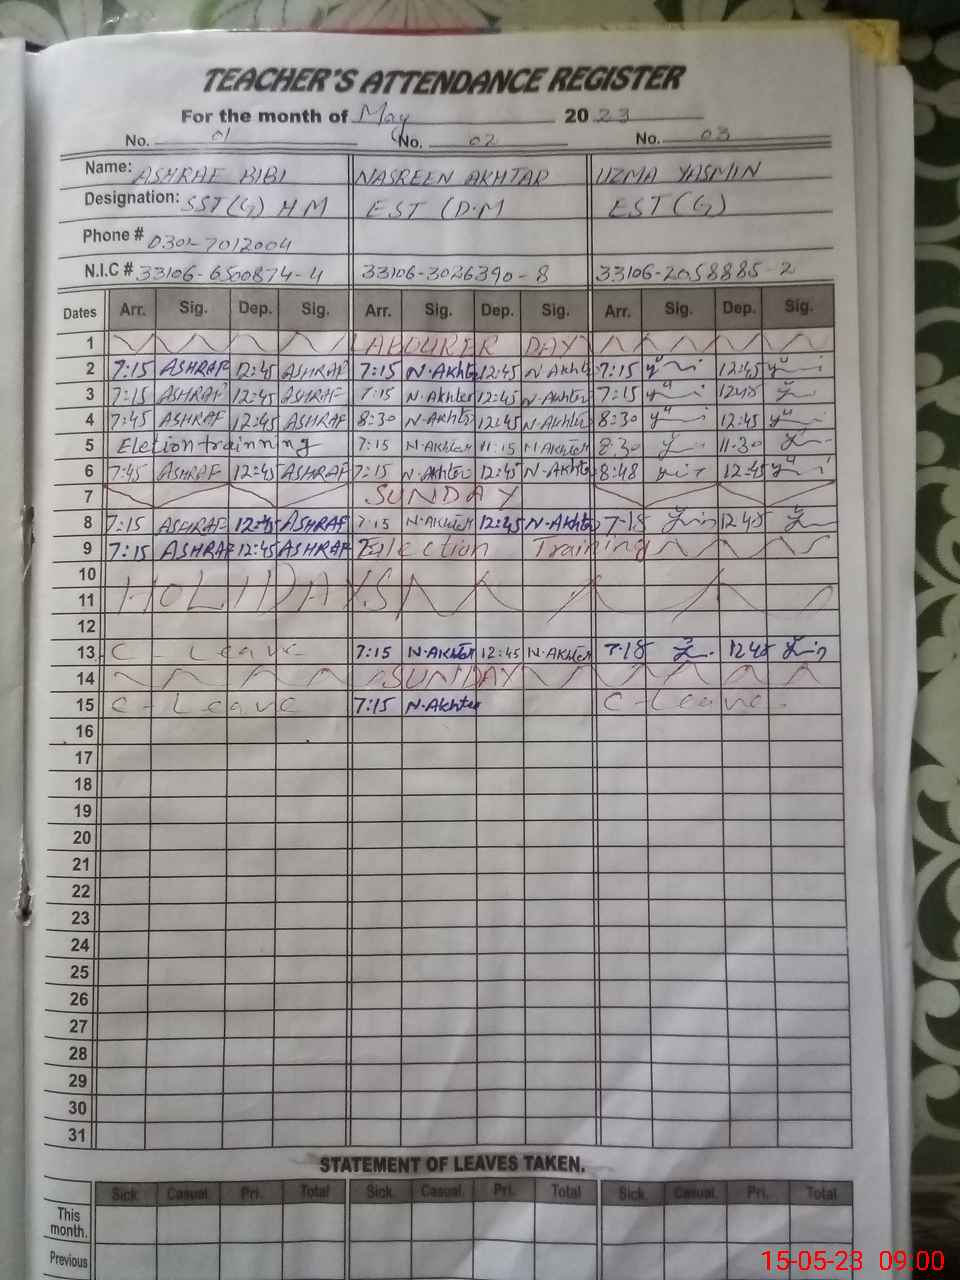 TEACHER'S ATTENDANCE REGISTER
For the month of May 2023
No. 01 No. 02 No. 03
Name: ASHRAF BIBI NASREEN AKHTAR UZMA YASMIN
Designation: SST(G) HM EST (D.M EST (G)
Phone # 0302-7012004
N.I.C # 33106-6500874-4 33106-3026390-8 33106-2058885-2
Dates Arr. Sig. Dep. Sig. Arr. Sig. Dep. Sig. Arr. Sig. Dep. Sig.
1 LABOURER DAY
2 7:15 ASHRAF 12:45 ASHRAF 7:15 N.Akhter 12:45 N.Akhter 7:15 12:45
3 7:15 ASHRAF 12:45 ASHRAF 7:15 N.Akhter 12:45 N.Akhter 7:15 12:45
4 7:45 ASHRAF 12:45 ASHRAF 8:30 N.Akhter 12:45 N.Akhter 8:30 12:45
5 Eletion trainning 7:15 N.Akhter 11:15 N.Akhter 8:30 11:30
6 7:45 ASHRAF 12:45 ASHRAF 7:15 N.Akhter 12:45 N.Akhter 8:48 12:45
7 SUNDAY
8 7:15 ASHRAF 12:45 ASHRAF 7:15 N.Akhter 12:45 N.Akhter 7-18 12:45
9 7:15 ASHRAF 12:45 ASHRAF Election Training
10
11 HOLIDAYS
12
13 C-Leave 7:15 N.Akhter 12:45 N.Akhter 7-18 12:45
14 SUNDAY
15 C-Leave 7:15 N.Akhter C-Leave
16
17
18
19
20
21
22
23
24
25
26
27
28
29
30
31
STATEMENT OF LEAVES TAKEN.
Sick. Casual. Pri. Total Sick. Casual. Pri. Total Sick. Casual. Pri. Total
This month.
Previous
15-05-23 09.00